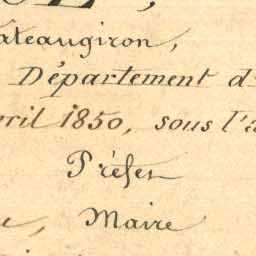 ateaugiron,
Département d
ril 1850, sous l'a
Préfet
e, Maire